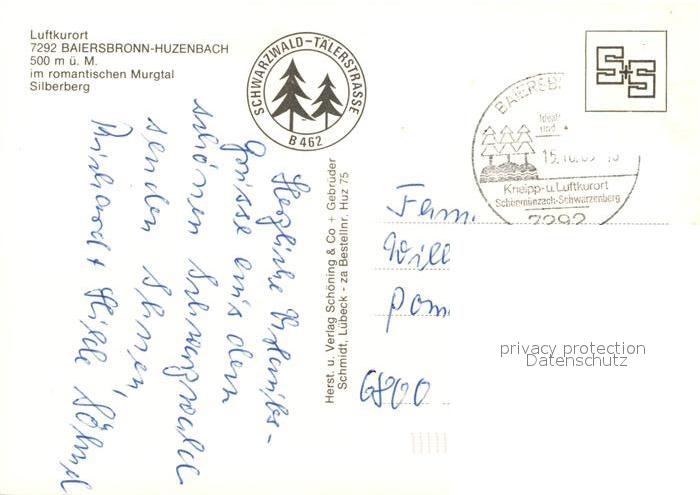 Luftkurort
7292 BAIERSBRONN-HUZENBACH
500 m ü. M.
im romantischen Murgtal
Silberberg
SCHWARZWALD-TÄLERSTRASSE
B 462
S+S
BAIERSB
Ideal
und
15.10.89
Kneipp-u.Luftkurort
Schönmünzach-Schwarzenberg
7292
Herst. u. Verlag Schöning & Co + Gebrüder
Schmidt, Lübeck - za Bestellnr. Huz 75
Herzliche Urlaubs-
grüsse aus dem
schönen Schwarzwald
senden Ihnen
Richard + Hilde
Fam.
Will
6800
privacy protection
Datenschutz